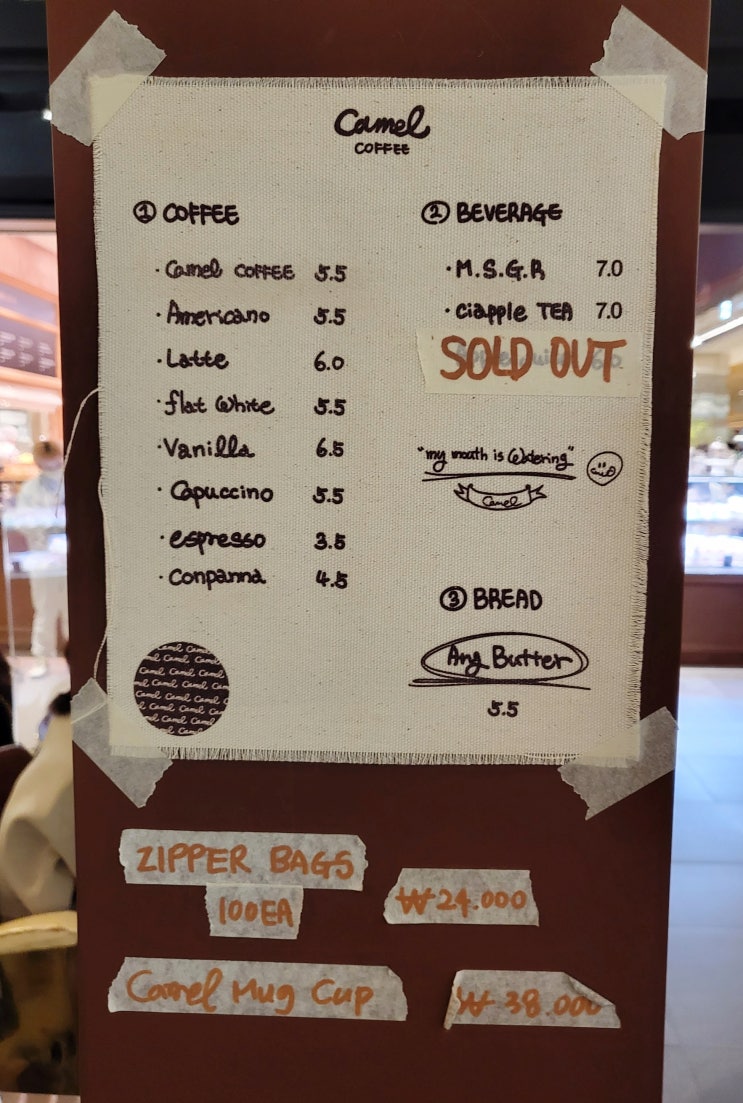 Camel
COFFEE
① COFFEE
· Camel COFFEE 5.5
· Americano 5.5
· Latte 6.0
· flat White 5.5
· Vanilla 6.5
· Capuccino 5.5
· espresso 3.5
· Conpanna 4.5
② BEVERAGE
· M.S.G.R 7.0
· Ciapple TEA 7.0
SOLD OUT
"my mouth is watering"
Camel
③ BREAD
Ang Butter
5.5
ZIPPER BAGS
100EA
₩24.000
Camel Mug Cup
₩ 38.000